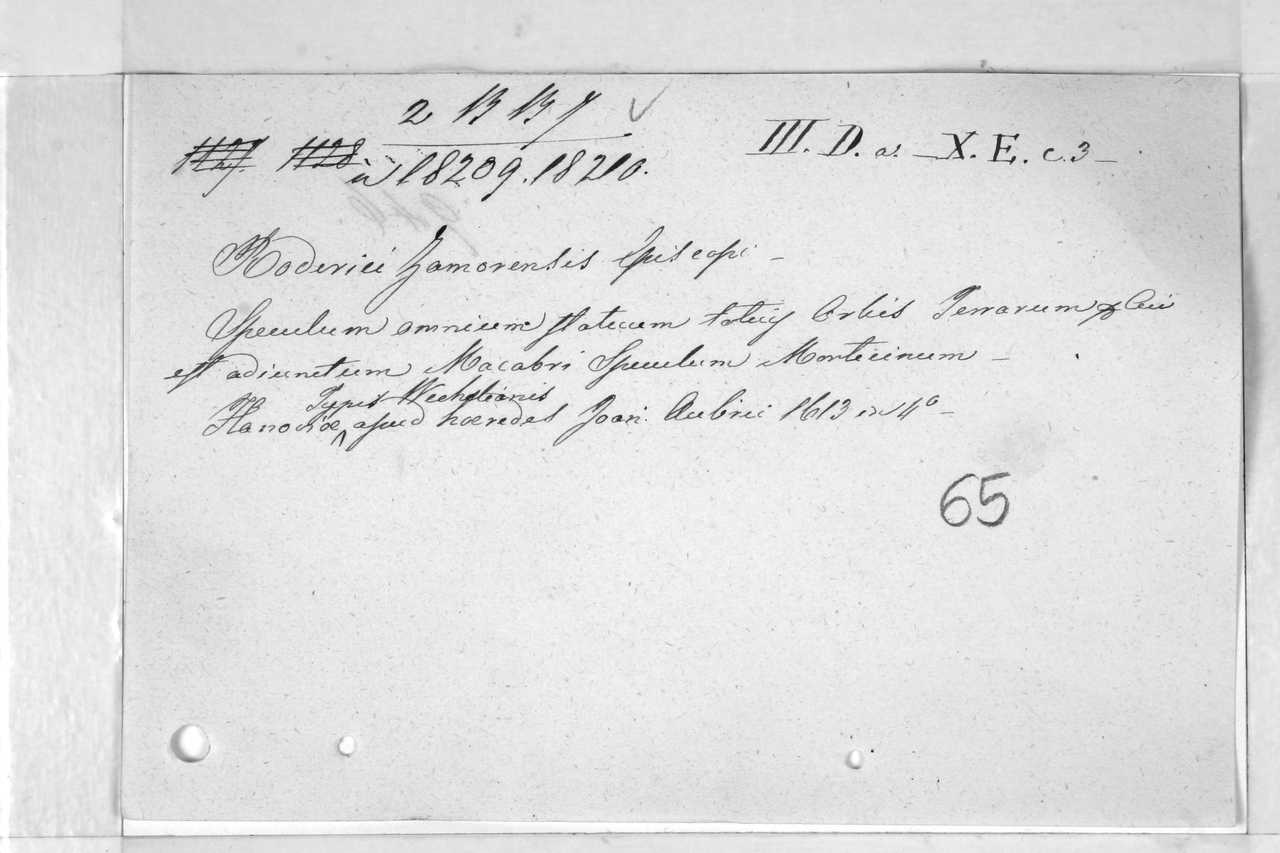 2 13 137
1127. 1128. a 18209. 18210.
III. D. a. — X. E. c. 3 —
Roderici Zamorensis Episcopi —
Speculum omnium statuum totius Orbis Terrarum Cui
est adiunctum Macabri Speculum Morticinum —
Typis Wechelianis
Hanoviae apud haeredes Joan. Aubrii 1613 in 4o —
65